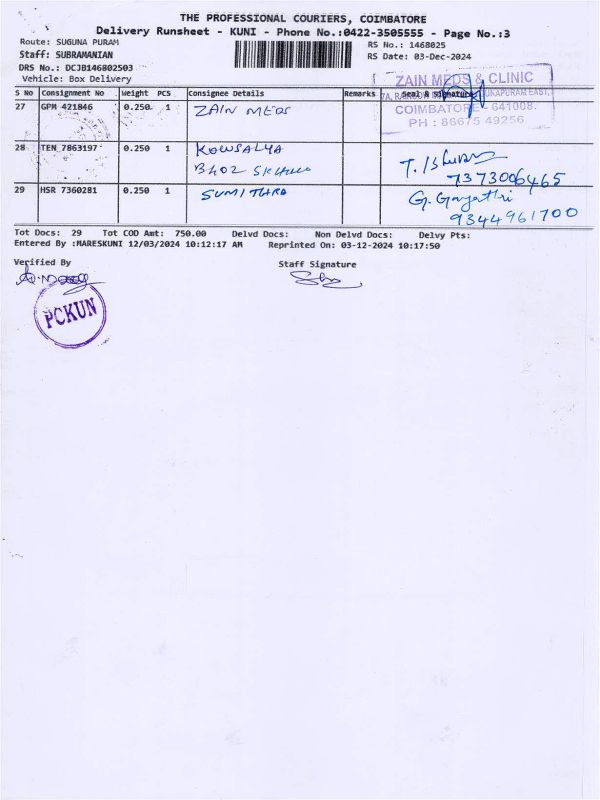 THE PROFESSIONAL COURIERS, COIMBATORE
Delivery Runsheet - KUNI - Phone No.:0422-3505555 - Page No.:3
Route: SUGUNA PURAM
RS No.: 1468025
Staff: SUBRAMANIAN
RS Date: 03-Dec-2024
DRS No.: DCJB146802503
Vehicle: Box Delivery
ZAIN MEDS & CLINIC
COIMBATORE - 641008.
PH : 86675 49256
S No Consignment No Weight PCS Consignee Details Remarks Seal & Signature
27 GPM 421846 0.250 1 ZAIN MEDS
28 TEN 7863197 0.250 1 KOWSALYA
B402
7373006465
29 HSR 7360281 0.250 1 SUMITHRA G. Gayathri
9344961700
Tot Docs: 29 Tot COD Amt: 750.00 Delvd Docs: Non Delvd Docs: Delvy Pts:
Entered By :MARESKUNI 12/03/2024 10:12:17 AM Reprinted On: 03-12-2024 10:17:50
Verified By
Staff Signature
PCKUN